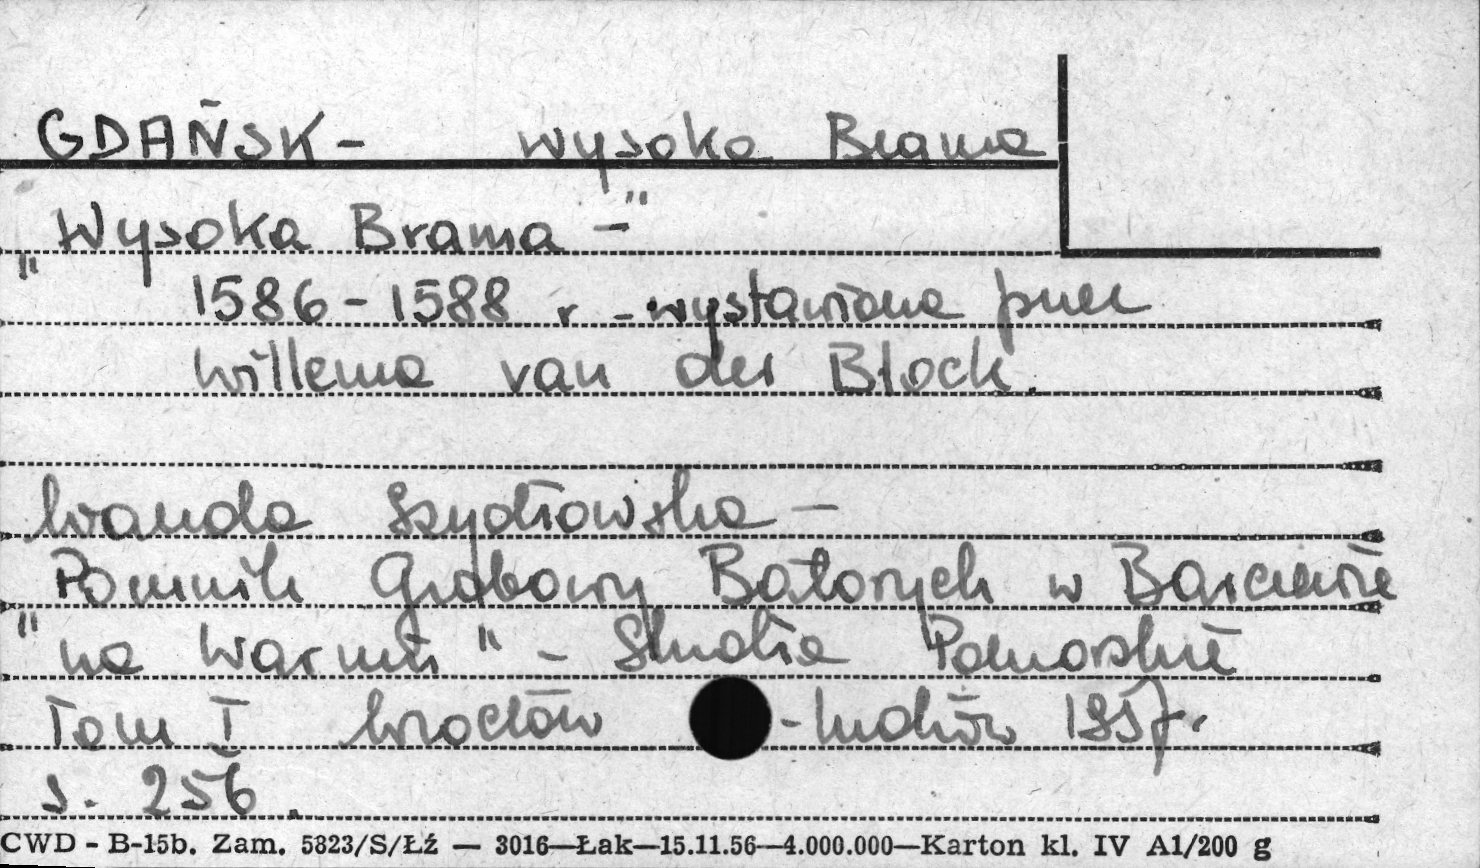 GDAŃSK - Wysoka Brama
"Wysoka Brama -"
1586 - 1588 r - wystawiona przez
Willema van der Block.
Wanda Szydłowska -
"Pomnik Grobowy Batorych w Barczewie
na Warmii" - Studia Pomorskie
Tom I Wrocław - Kraków 1957r.
s. 256.
CWD - B-15b. Zam. 5823/S/Łź — 3016—Łak—15.11.56—4.000.000—Karton kl. IV A1/200 g